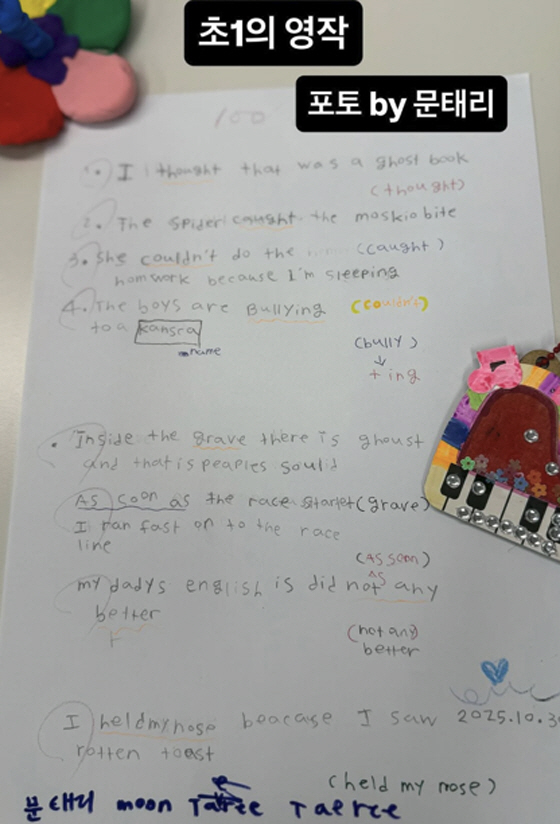 초1의 영작
포토 by 문태리
100
1. I thought that was a ghost book
(thought)
2. The spider caught the moskio bite
3. She couldn't do the (caught)
homswork because I'm sleeping
4. The boys are Bullying (couldn't)
to a kansra
name
(bully)
↓
+ ing
• Inside the grave there is ghoust
and that is peaples soulid
As soon as the race startet (grave)
I ran fast on to the race
line
(As soon)
As
my dadys english is did not any
better
(not any)
better
I held my nose beacase I saw 2025.10.30
rotten toast
(held my nose)
문태리 moon Taerce